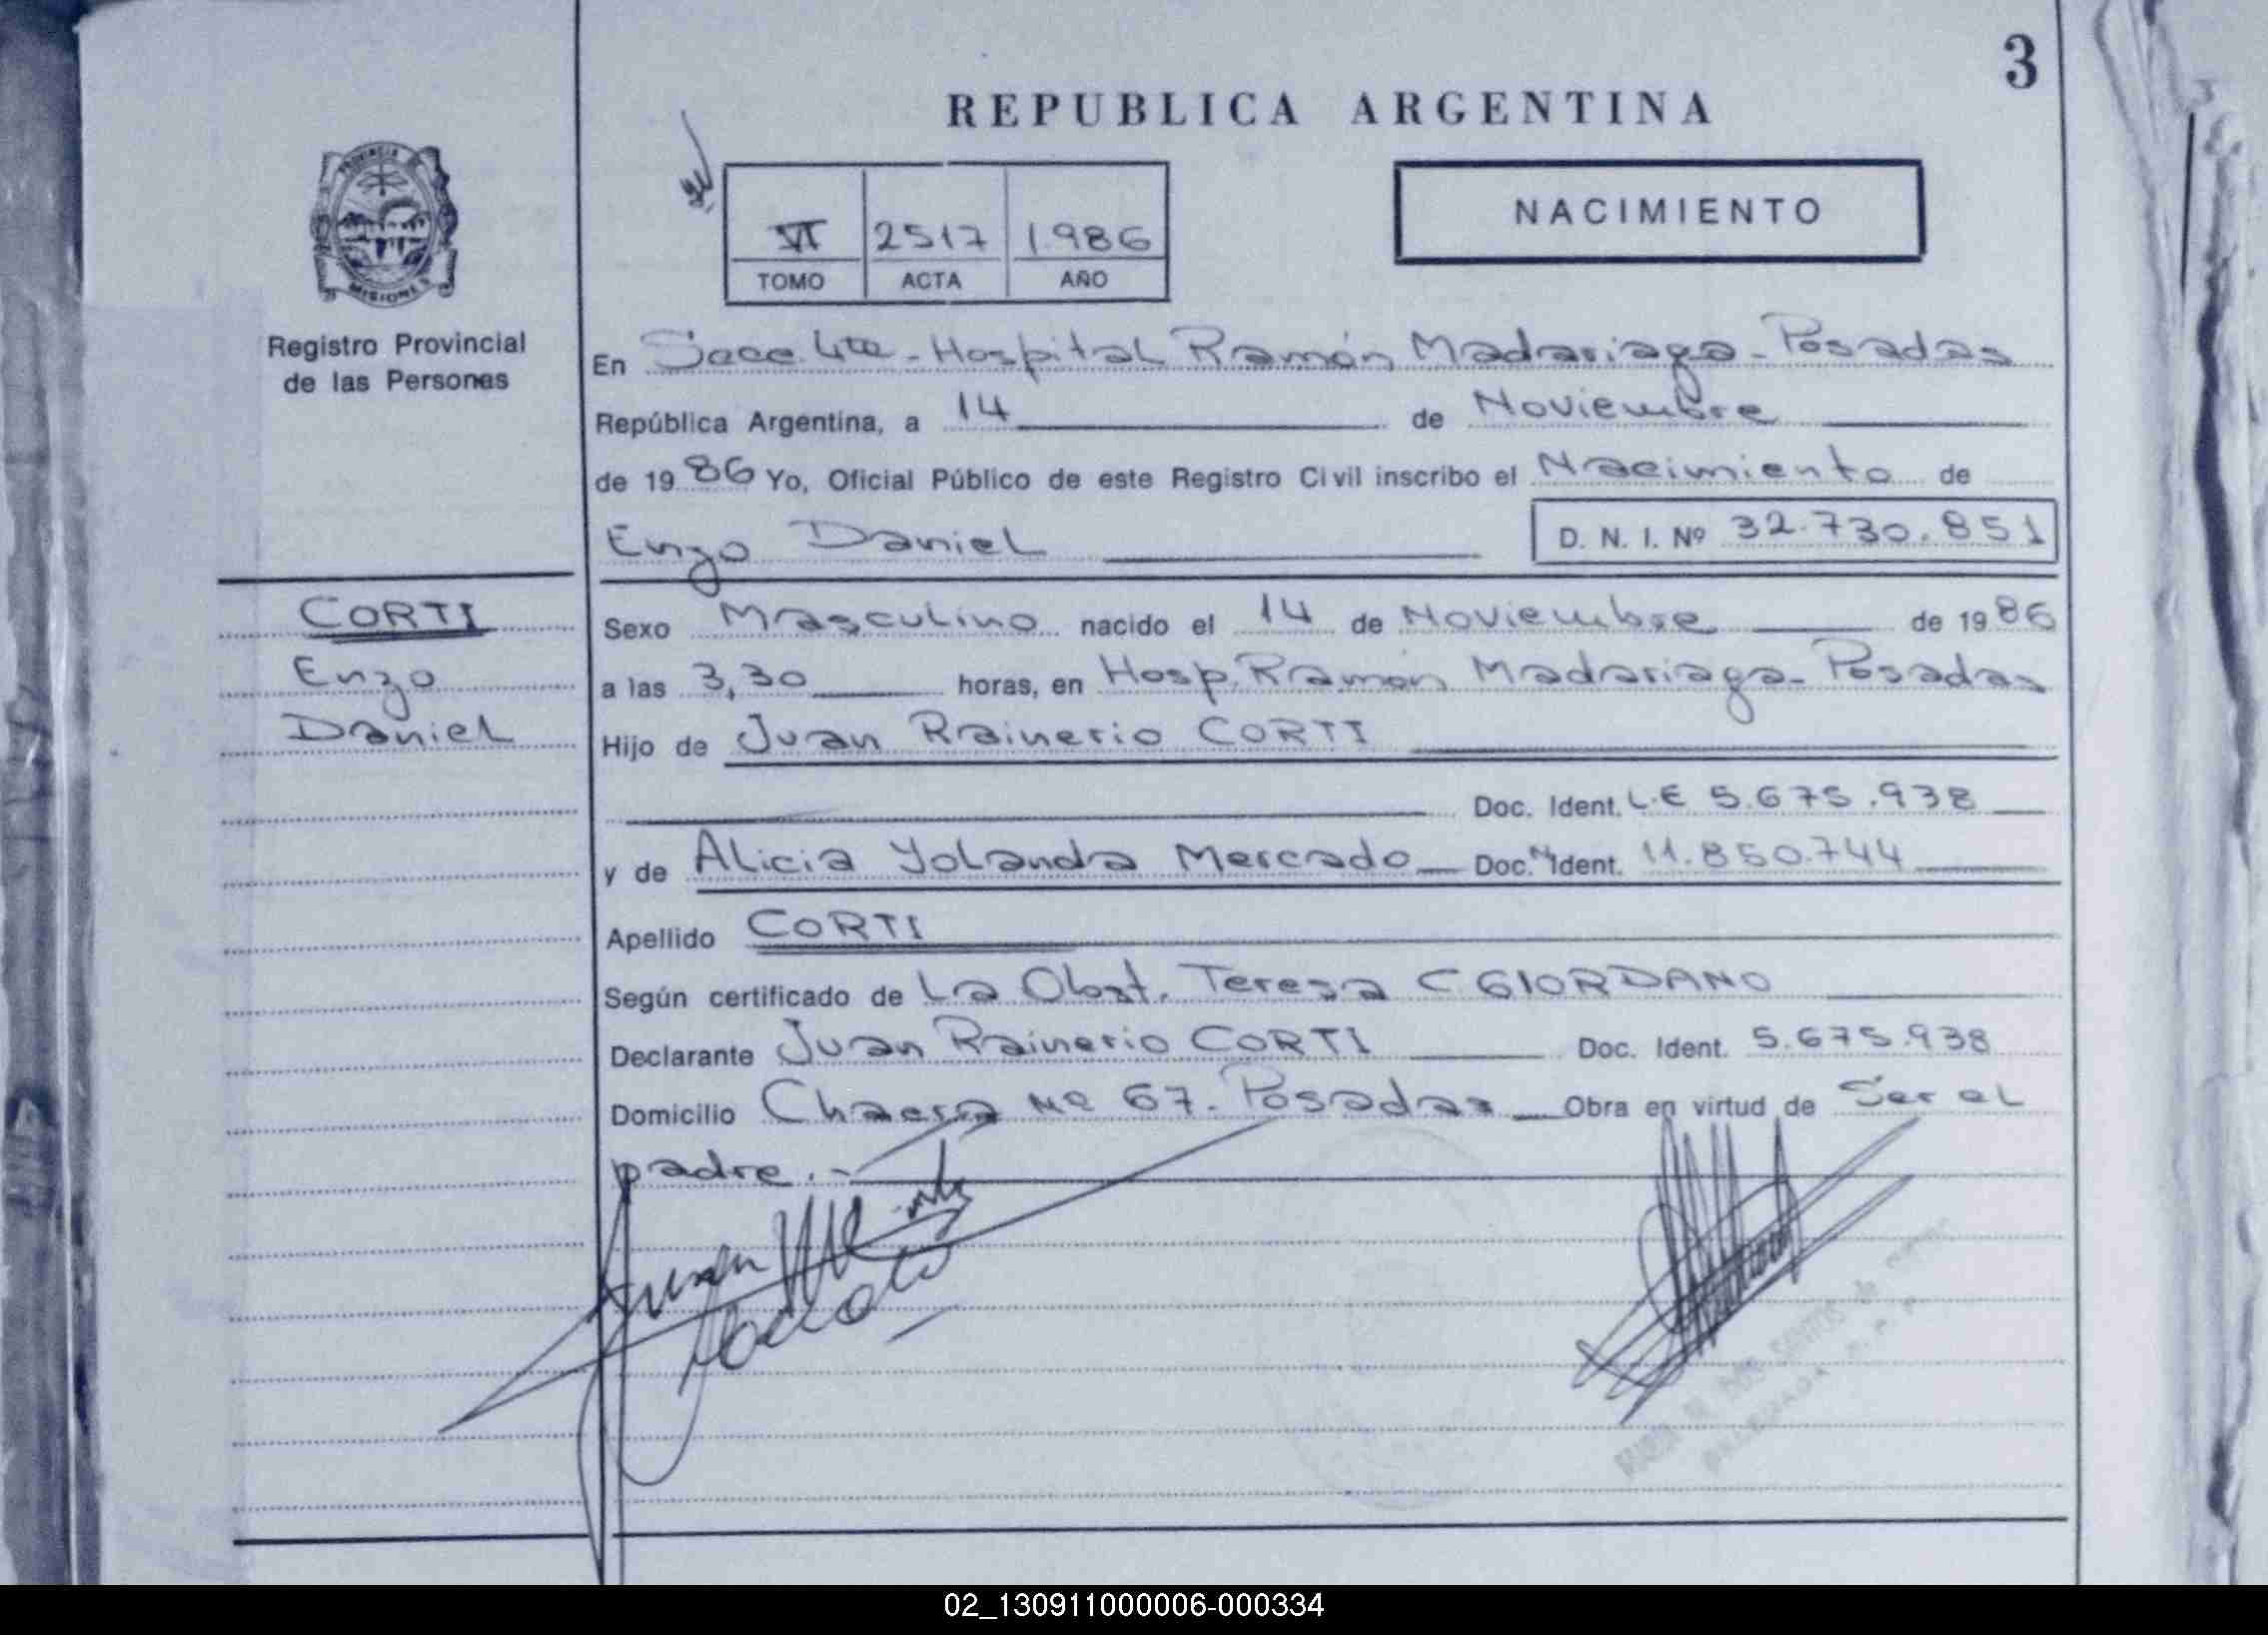 3
REPUBLICA ARGENTINA
PROVINCIA DE
MISIONES
Registro Provincial
de las Personas
VI 2517 1986
TOMO ACTA AÑO
NACIMIENTO
En Secc. 4ta - Hospital Ramón Madariaga - Posadas
República Argentina, a 14 de Noviembre
de 1986 Yo, Oficial Público de este Registro Civil inscribo el Nacimiento de
Enzo Daniel D. N. I. Nº 32.730.851
CORTI
Enzo
Daniel
Sexo Masculino nacido el 14 de Noviembre de 1986
a las 3,30 horas, en Hosp. Ramón Madariaga - Posadas
Hijo de Juan Rainerio CORTI
Doc. Ident. L.E 5.675.938
y de Alicia Yolanda Mercado Doc. Ident. 11.850.744
Apellido CORTI
Según certificado de La Obst. Teresa C GIORDANO
Declarante Juan Rainerio CORTI Doc. Ident. 5.675.938
Domicilio Chacra Nº 67. Posadas Obra en virtud de Ser el
padre.-
DOS SANTOS de
02_130911000006-000334